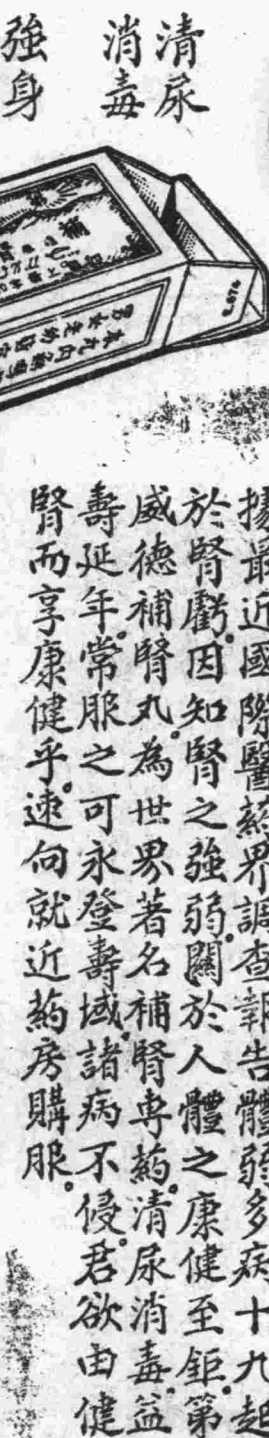 清尿
消毒
強身
據最近國際醫葯界調查報告體弱多病十九起
於腎虧。因知腎之強弱。關於人體之康健至鉅。第
威德補腎丸。為世界著名補腎專葯。清尿消毒。益
壽延年。常服之可永登壽域。諸病不侵。君欲由健
腎而享康健乎。速向就近葯房購服。